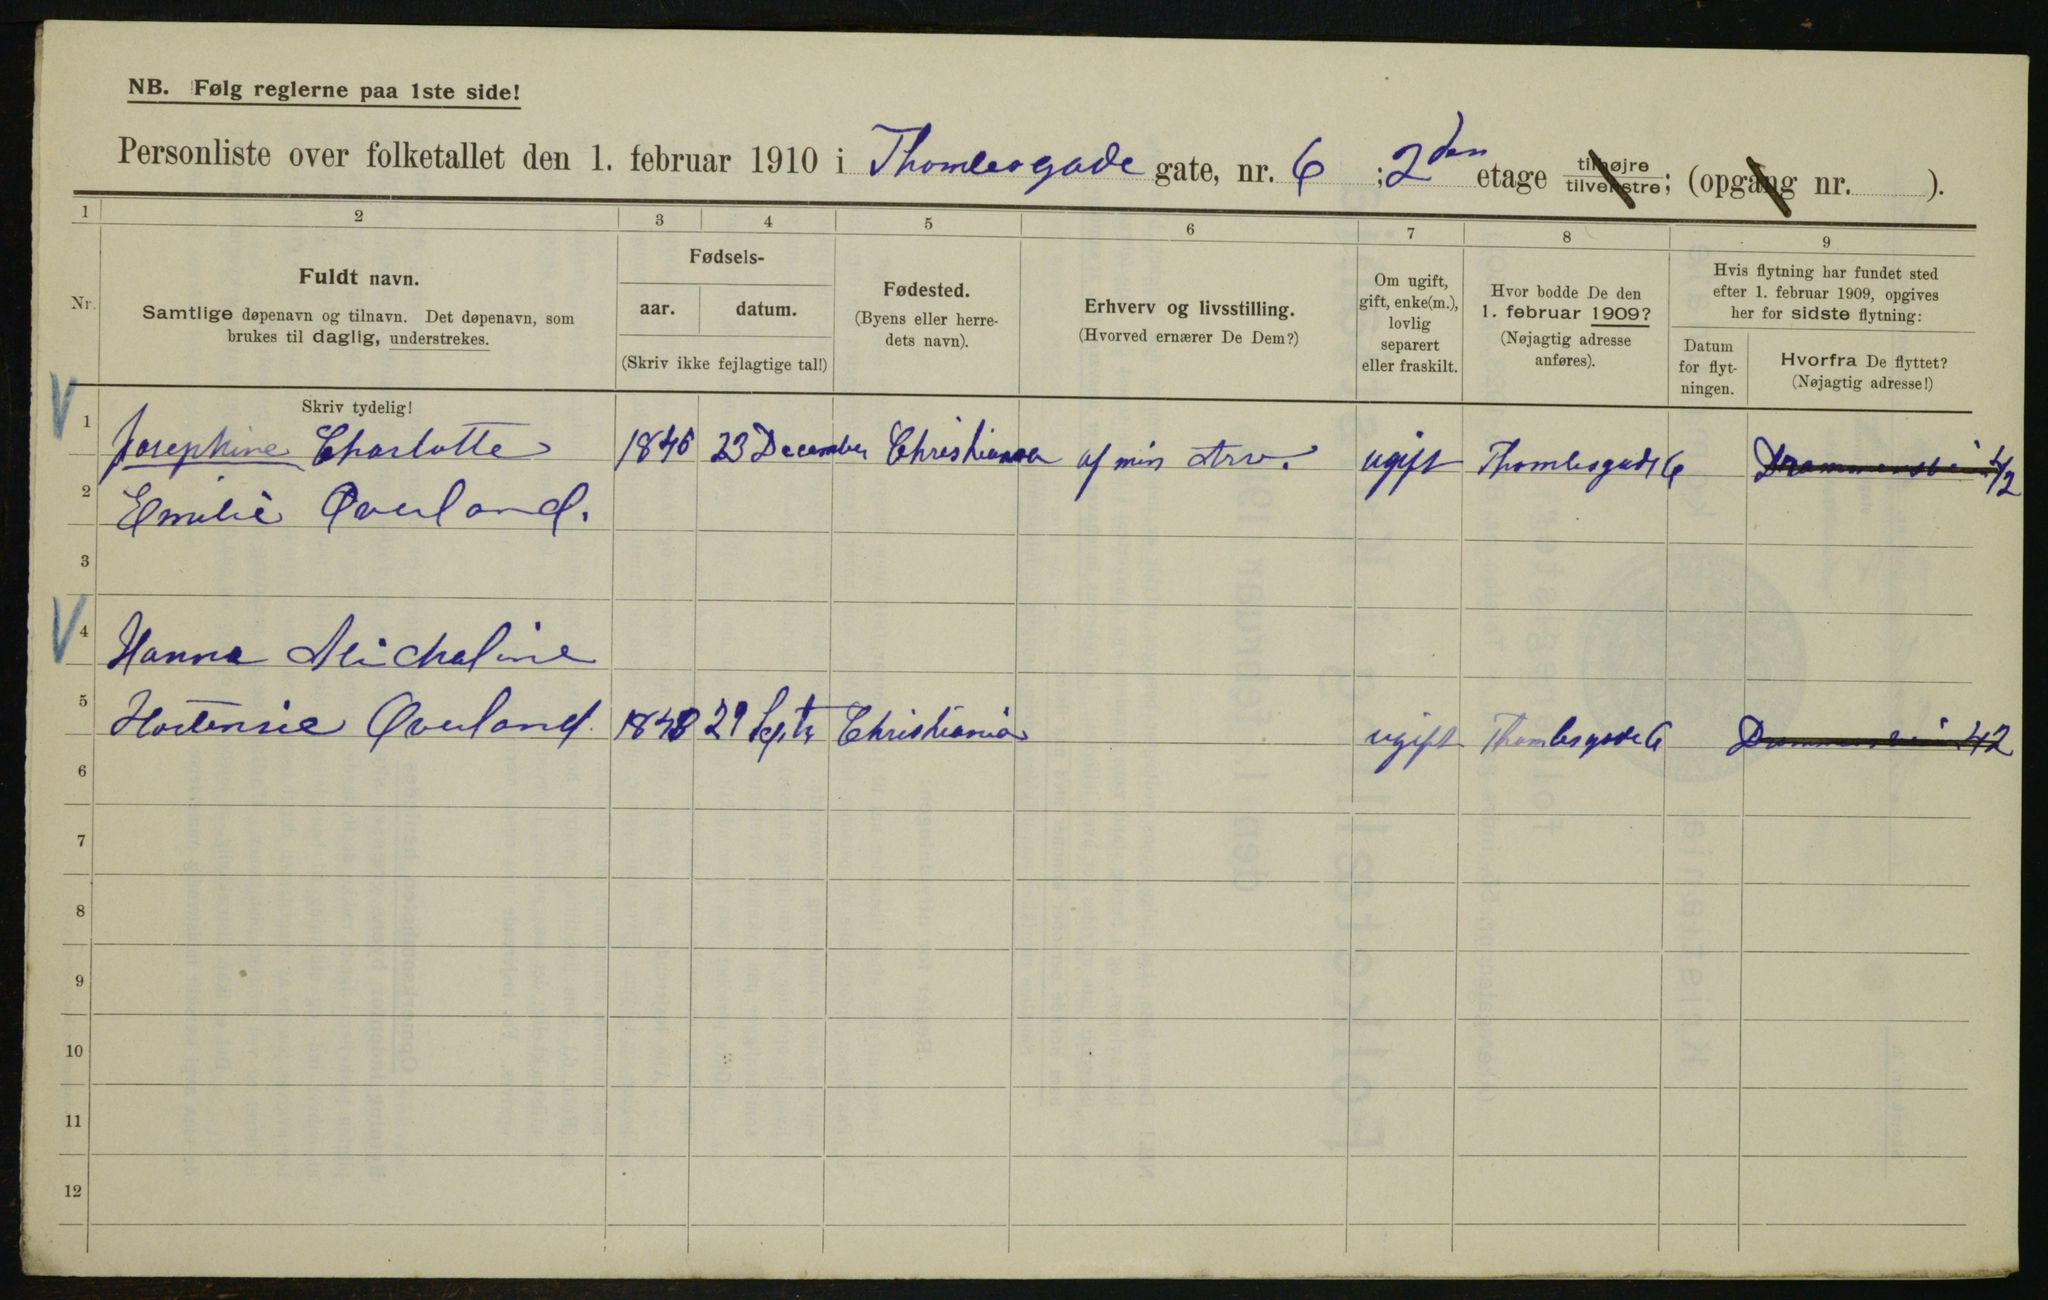 NB. Følg reglerne paa 1ste side!
Personliste over folketallet den 1. februar 1910 i Thomlesgade gate, nr. 6 ; 2den etage tilhøjre tilvenstre; (opgang nr. ).
1 2 3 4 5 6 7 8 9
Nr.
Fuldt navn.
Samtlige døpenavn og tilnavn. Det døpenavn, som
brukes til daglig, understrekes.
Fødsels-
aar. datum.
(Skriv ikke fejlagtige tal!)
Fødested.
(Byens eller herre-
dets navn).
Erhverv og livsstilling.
(Hvorved ernærer De Dem?)
Om ugift,
gift, enke(m.),
lovlig
separert
eller fraskilt.
Hvor bodde De den
1. februar 1909?
(Nøjagtig adresse
anføres).
Hvis flytning har fundet sted
efter 1. februar 1909, opgives
her for sidste flytning:
Datum
for flyt-
ningen.
Hvorfra De flyttet?
(Nøjagtig adresse!)
Skriv tydelig!
1 Josephine Charlotte 23 December Christiania af min Arv. ugift Thomlesgade 6 Drammensvein 42
2 Emilie Øverland.
3
4 Hanna Michaline
5 Hortensie Øverland. 29 Septr Christiania ugift Thomlesgade 6 Drammensvein 42
6
7
8
9
10
11
12